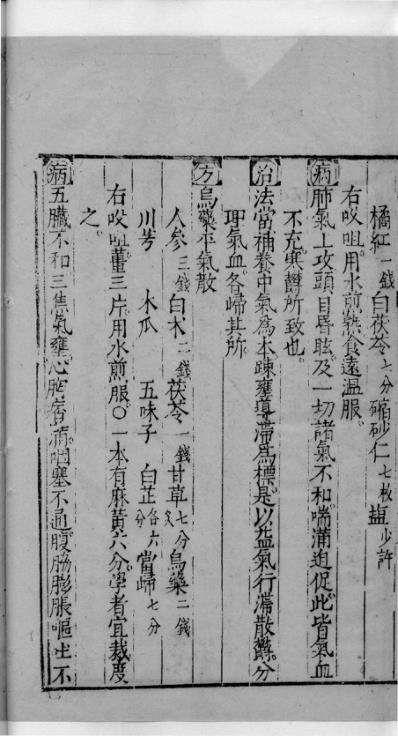 橘紅一錢白茯苓七分縮砂仁七枚塩少許
右㕮咀用水煎熟食遠溫服
病肺氣上攻頭目昏眩及一切諸氣不和喘滿迫促此皆氣血
不充寒欝所致也
治法當補養中氣為本踈壅導滯為標是以益氣行滯散欝分
理氣血各歸其所
方烏藥平氣散
人參三錢白朮二錢茯苓一錢甘草七分炙烏藥二錢
川芎 木瓜 五味子 白芷各六分當歸七分
右㕮咀薑三片用水煎服〇一本有麻黃六分學者宜裁度
之
病五臟不和三焦氣壅心胸痞滿咽塞不通腹脇膨脹嘔吐不